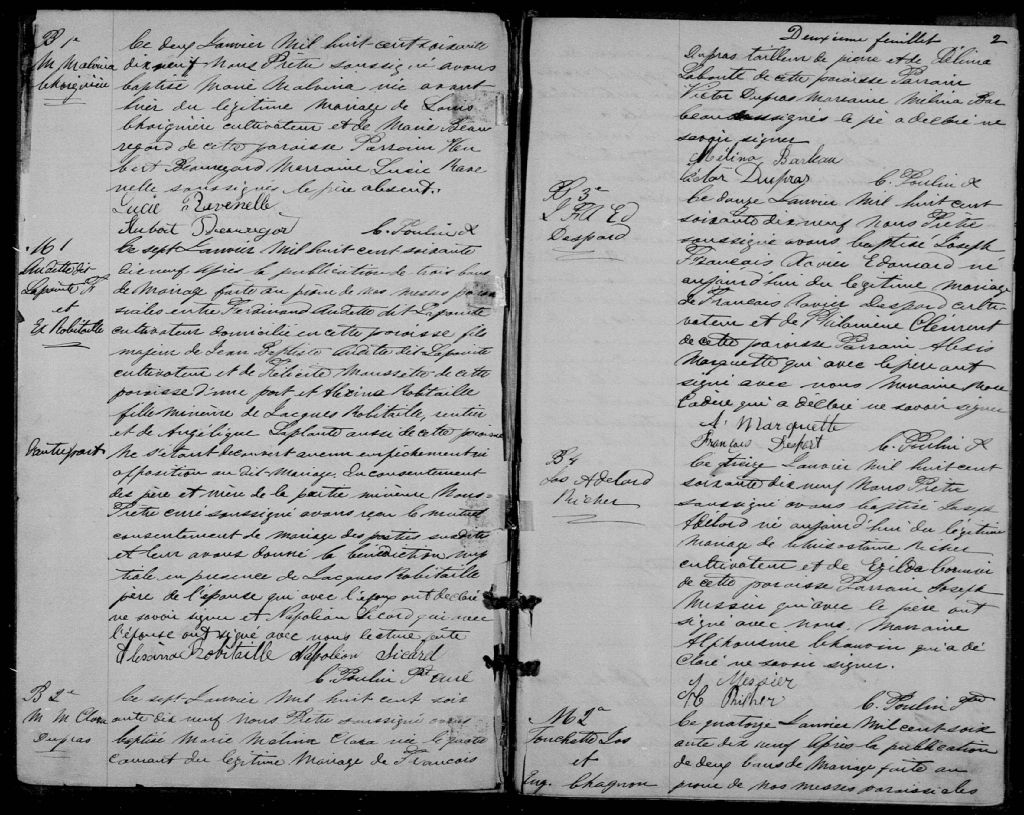 B 1e
M Malvina
Choignière
Ce deux Janvier Mil huit cent soixante
dix neuf Nous Prêtre soussigné avons
baptisé Marie Malvina née avant
hier du légitime mariage de Louis
Choignière cultivateur et de Marie Beau
regard de cette paroisse Parrain Hu
bert Beauregard Marraine Lucie Rave
nelle soussignés le père absent.
Lucie Ravenelle
C. Poulin
M 1
Audette dit
Lapointe F
et
Ex Robitaille
Ce sept Janvier Mil huit cent soixante
dix neuf après la publication de trois bans
de mariage faite au prône de nos messes parois
siales entre Ferdinand Audette dit Lapointe
cultivateur domicilié en cette paroisse fils
majeur de Jean Baptiste Audette dit Lapointe
cultivateur et de Félicité Moussette de cette
paroisse d'une part et Alexina Robitaille
fille mineure de Jacques Robitaille, rentier
et de Angélique Laplante aussi de cette paroisse
d'autre part
Ne s'étant découvert aucun empêchement ni
opposition au dit mariage, Du consentement
des père et mère de la partie mineure Nous
Prêtre curé soussigné avons reçu le mutuel
consentement de mariage des parties susdites
et leur avons donné la bénédiction nup
tiale en présence de Jacques Robitaille
père de l'épouse qui avec l'époux ont déclaré
ne savoir signer et Napoléon Sicard qui avec
l'épouse ont signé avec nous lecture faite
Alexina Robitaille Napoléon Sicard
C. Poulin Ptre curé
B 2e
M M Clara
Dupras
Ce sept Janvier Mil huit cent soix
ante dix neuf Nous Prêtre soussigné avons
baptisé Marie Melina Clara née le quatre
courant du légitime Mariage de François
Deuxième feuillet 2
Dupras tailleur de pierre et de Célina
Laboute de cette paroisse Parrain
Victor Dupras Marraine Melina Bar
beau soussignés le père a déclaré ne
savoir signer
Mélina Barbeau
Victor Dupras C. Poulin
B 3e
J F X Ed
Despard
Ce douze Janvier Mil huit cent
soixante dix neuf Nous Prêtre
soussigné avons baptisé Joseph
François Xavier Edouard né
aujourd'hui du légitime mariage
de François Xavier Despard culti-
vateur et de Philomène Clément
de cette paroisse Parrain Alexis
Marquette qui avec le père ont
signé avec nous Marraine Marie
qui a déclaré ne savoir signer
A. Marquette
François Despart C. Poulin
B 4
Jos Adelard
Richer
Ce treize Janvier Mil huit cent
soixante dix neuf Nous Prêtre
soussigné avons baptisé Joseph
Adelard né aujourd'hui du légitime
mariage de Chrisostome Richer
cultivateur et de Exilda Cormier
de cette paroisse Parrain Joseph
Messier qui avec le père ont
signé avec nous. Marraine
Alphonsine Chauvin qui a dé
claré ne savoir signer.
J Messier
C Richer C. Poulin Ptre
M 2e
Touchette Jos
et
Eug. Chagnon
Ce quatorze Janvier Mil cent soix
ante dix neuf Après la publication
de deux bans de Mariage faite au
prône de nos messes paroissiales